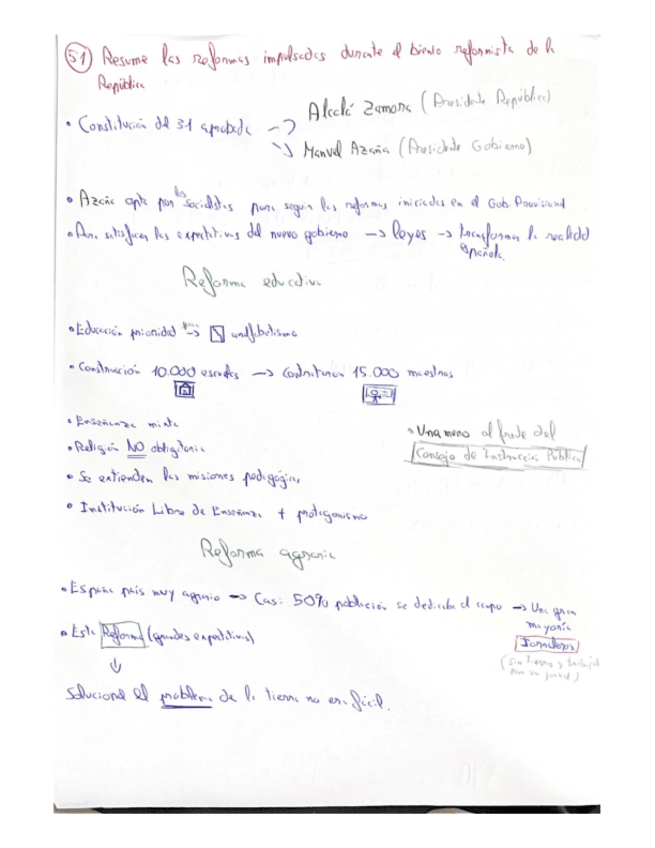 51 Resume las reformas impulsadas durante el bienio reformista de la
República
Alcalá Zamora (Presidente República)
• Constitución del 31 aprobada →
↘ Manuel Azaña (Presidente Gobierno)
• Azaña opta por los Socialistas para seguir las reformas iniciadas en el Gob. Provisional
• Para satisfacer las expectativas del nuevo gobierno → leyes → transforman la realidad
española.
Reforma educativa
• Educación prioridad → analfabetismo
• Construcción 10.000 escuelas → Contrataron 15.000 maestros
• Enseñanza mixta
• Religión NO obligatoria
• Unamuno al frente del
Consejo de Instrucción Pública
• Se extienden las misiones pedagógicas
• Institución Libre de Enseñanza + protagonismo
Reforma agraria
• España país muy agrario → Casi 50% población se dedicaba el campo → Una gran
mayoría
Jornaleros
(Sin tierras y trabajab
por un jornal)
• Esta Reforma (grandes expectativas)
↓
Solucionar el problema de la tierra no era fácil.